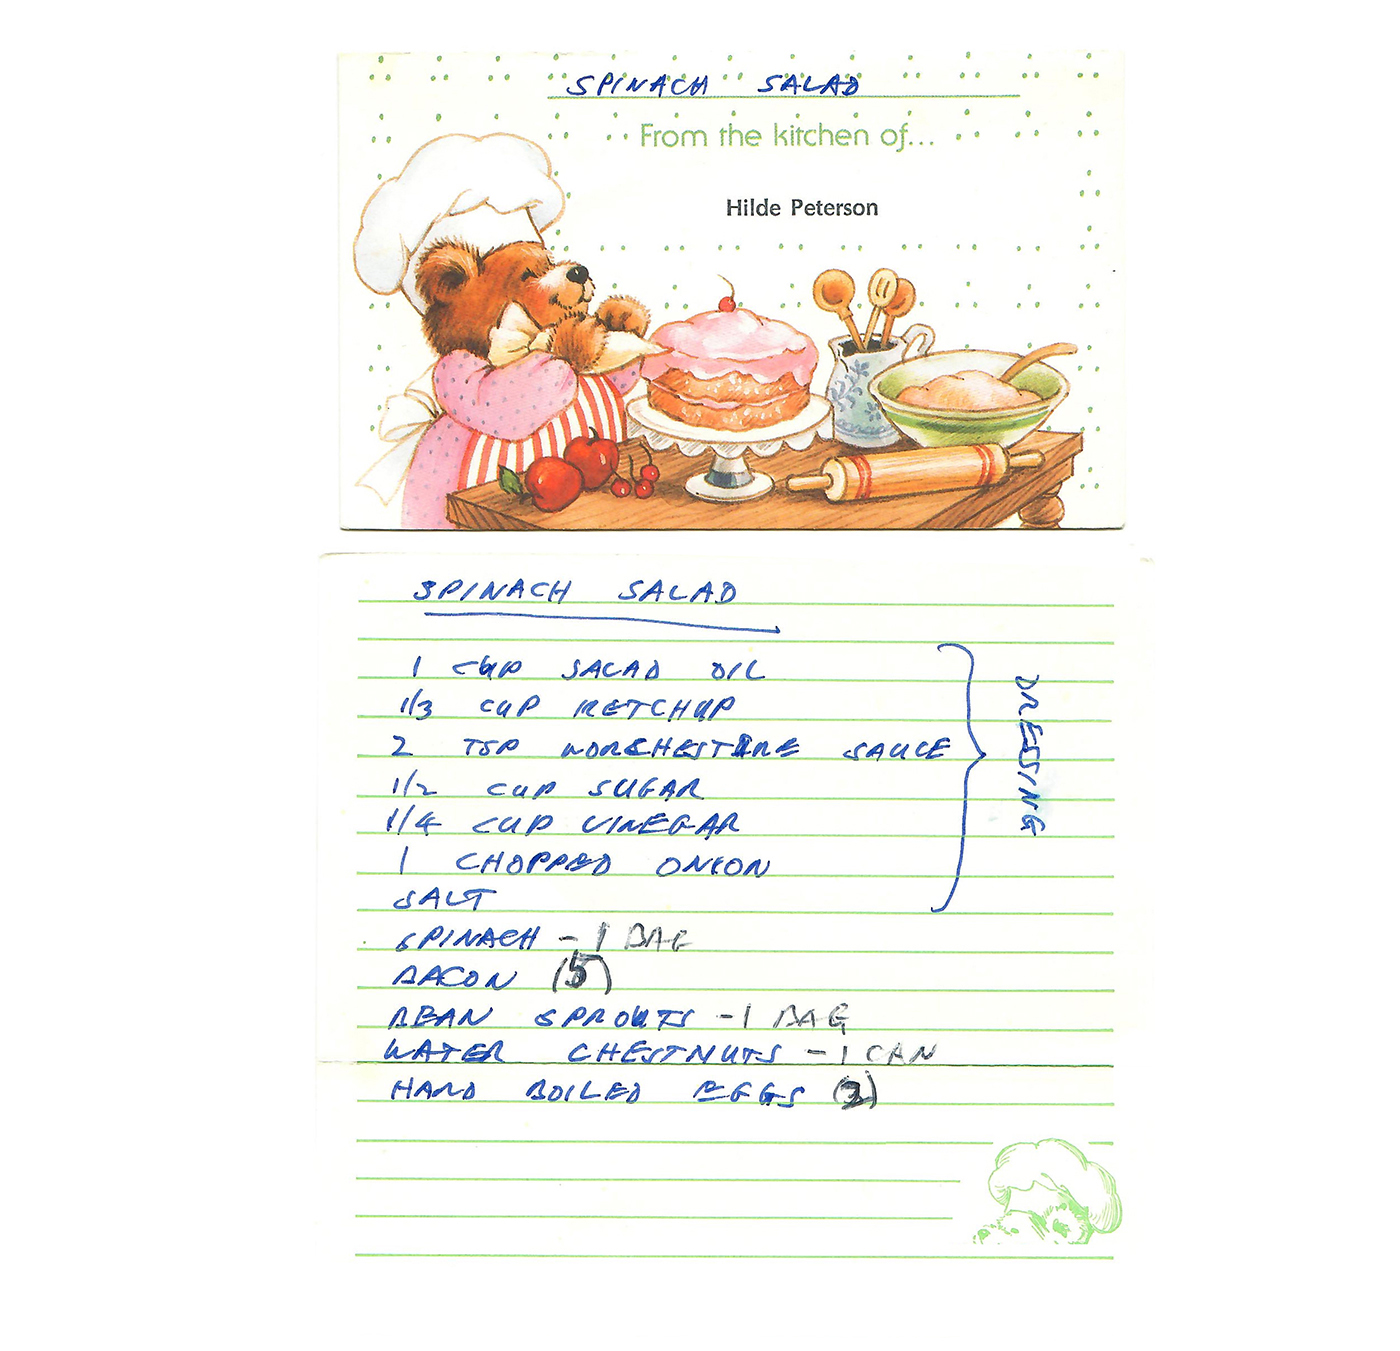 SPINACH SALAD
From the kitchen of...
Hilde Peterson
SPINACH SALAD
1 CUP SALAD OIL
1/3 CUP KETCHUP
2 TSP WORCHESTIRE SAUCE
1/2 CUP SUGAR
1/4 CUP VINEGAR
1 CHOPPED ONION
SALT
DRESSING
SPINACH - 1 BAG
BACON (5)
BEAN SPROUTS - 1 BAG
WATER CHESTNUTS - 1 CAN
HARD BOILED EGGS (2)